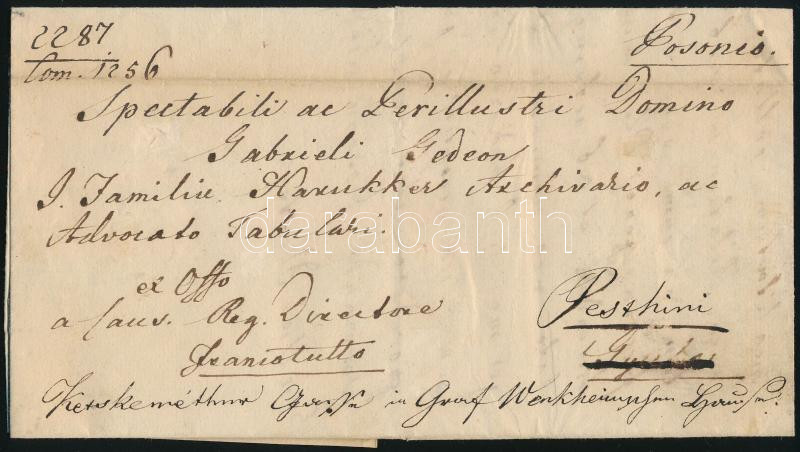 2287
Tom. 1256
Posonio.
Spectabili ac Perillustri Domino
Gabrieli Gedeon
I. Familiæ Harukker Archivario, ac
Advocato Tabulari.
ex Offo
a Caus. Reg. Directore
franco tutto
Pesthini
Kecskeméthner Gasse in Graf Wenkheimschen Hause.
darabanth